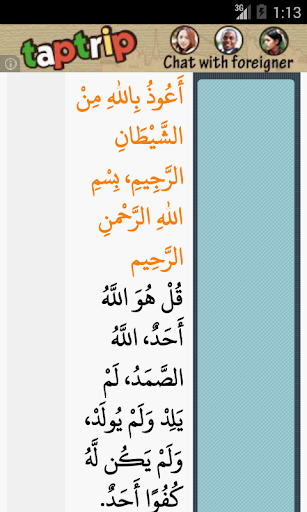 3G 1:13
taptrip
Chat with foreigner
أَعُوذُ بِاللهِ مِنْ
الشَّيْطَانِ
الرَّجِيمِ، بِسْمِ
اللهِ الرَّحْمنِ
الرَّحِيم
قُلْ هُوَ اللَّهُ
أَحَدٌ، اللَّهُ
الصَّمَدُ، لَمْ
يَلِدْ وَلَمْ يُولَدْ،
وَلَمْ يَكُن لَّهُ
كُفُوًا أَحَدٌ.